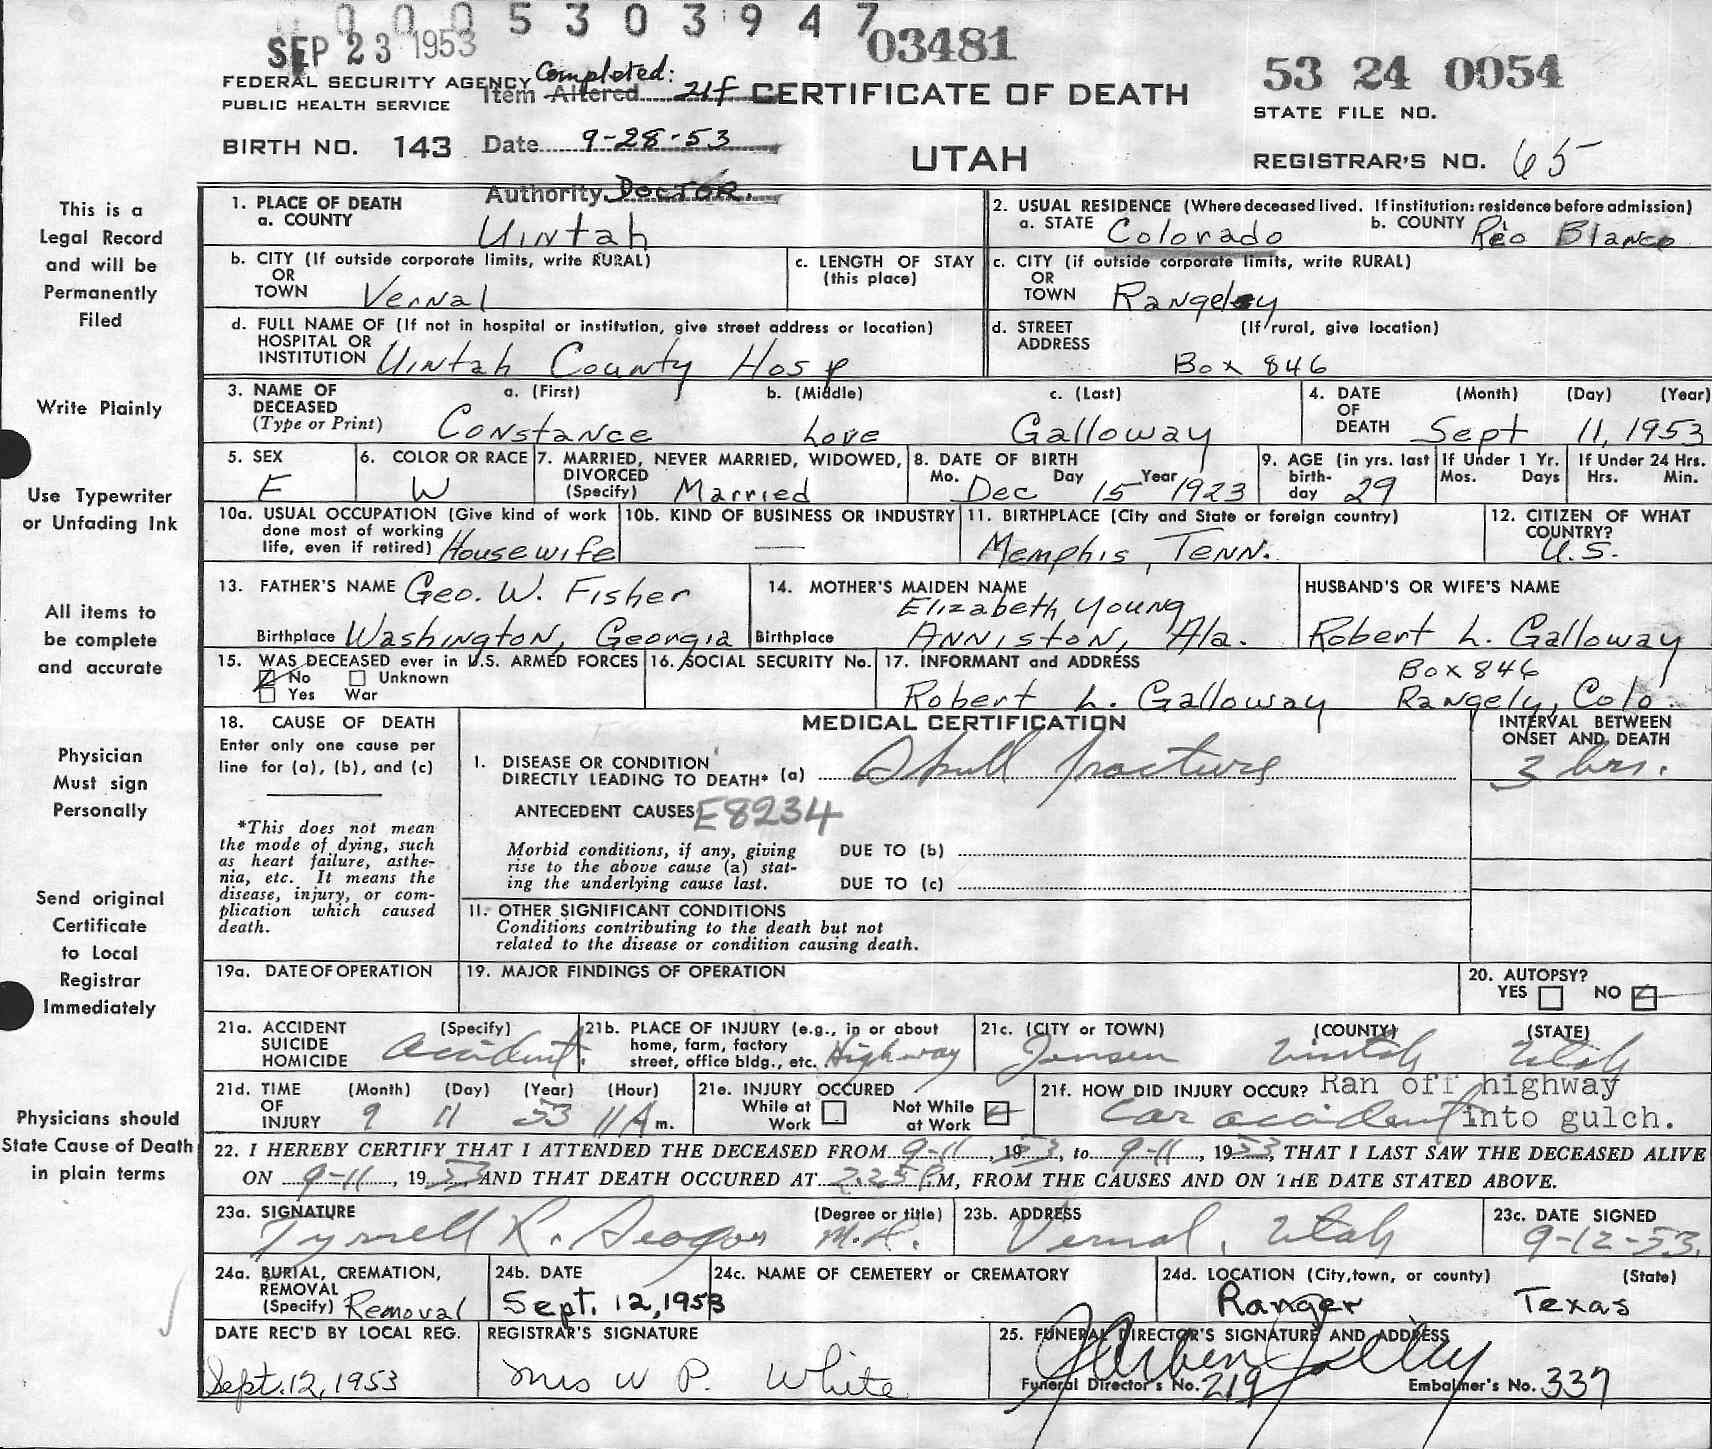 0005303947
SEP 23 1953
03481
53 24 0054
FEDERAL SECURITY AGENCY
PUBLIC HEALTH SERVICE
Completed:
Item Altered 21f
CERTIFICATE OF DEATH
STATE FILE NO.
BIRTH NO. 143
Date 9-28-53
UTAH
REGISTRAR'S NO. 65
Authority Doctor.
This is a
Legal Record
and will be
Permanently
Filed
Write Plainly
Use Typewriter
or Unfading Ink
All items to
be complete
and accurate
Physician
Must sign
Personally
Send original
Certificate
to Local
Registrar
Immediately
Physicians should
State Cause of Death
in plain terms
1. PLACE OF DEATH
a. COUNTY Uintah
2. USUAL RESIDENCE (Where deceased lived. If institution: residence before admission)
a. STATE Colorado b. COUNTY Rio Blanco
b. CITY (If outside corporate limits, write RURAL)
OR
TOWN Vernal
c. LENGTH OF STAY
(this place)
c. CITY (if outside corporate limits, write RURAL)
OR
TOWN Rangely
d. FULL NAME OF (If not in hospital or institution, give street address or location)
HOSPITAL OR
INSTITUTION Uintah County Hosp
d. STREET (If rural, give location)
ADDRESS
Box 846
3. NAME OF a. (First) b. (Middle) c. (Last)
DECEASED
(Type or Print) Constance Love Galloway
4. DATE (Month) (Day) (Year)
OF
DEATH Sept 11, 1953
5. SEX
F
6. COLOR OR RACE
W
7. MARRIED, NEVER MARRIED, WIDOWED,
DIVORCED
(Specify) Married
8. DATE OF BIRTH
Mo. Day Year
Dec 15 1923
9. AGE (in yrs. last
birth-
day 29
If Under 1 Yr.
Mos. Days
If Under 24 Hrs.
Hrs. Min.
10a. USUAL OCCUPATION (Give kind of work
done most of working
life, even if retired) Housewife
10b. KIND OF BUSINESS OR INDUSTRY
—
11. BIRTHPLACE (City and State or foreign country)
Memphis, Tenn.
12. CITIZEN OF WHAT
COUNTRY?
U.S.
13. FATHER'S NAME Geo. W. Fisher
Birthplace Washington, Georgia
14. MOTHER'S MAIDEN NAME
Elizabeth Young
Birthplace Anniston, Ala.
HUSBAND'S OR WIFE'S NAME
Robert L. Galloway
15. WAS DECEASED ever in U.S. ARMED FORCES
No Unknown
Yes War
16. SOCIAL SECURITY No.
17. INFORMANT and ADDRESS
Box 846
Robert L. Galloway Rangely, Colo.
18. CAUSE OF DEATH
Enter only one cause per
line for (a), (b), and (c)
*This does not mean
the mode of dying, such
as heart failure, asthe-
nia, etc. It means the
disease, injury, or com-
plication which caused
death.
MEDICAL CERTIFICATION
INTERVAL BETWEEN
ONSET AND DEATH
I. DISEASE OR CONDITION
DIRECTLY LEADING TO DEATH* (a) Skull fracture 3 hrs.
ANTECEDENT CAUSES E8234
Morbid conditions, if any, giving
rise to the above cause (a) stat-
ing the underlying cause last.
DUE TO (b)
DUE TO (c)
II. OTHER SIGNIFICANT CONDITIONS
Conditions contributing to the death but not
related to the disease or condition causing death.
19a. DATE OF OPERATION
19. MAJOR FINDINGS OF OPERATION
20. AUTOPSY?
YES NO
21a. ACCIDENT (Specify)
SUICIDE
HOMICIDE Accident.
21b. PLACE OF INJURY (e.g., in or about
home, farm, factory
street, office bldg., etc. Highway
21c. (CITY or TOWN) (COUNTY) (STATE)
Jensen Uintah Utah
21d. TIME (Month) (Day) (Year) (Hour)
OF
INJURY 9 11 53 11 A m.
21e. INJURY OCCURED
While at Not While
Work at Work
21f. HOW DID INJURY OCCUR? Ran off highway
Car accident into gulch.
22. I HEREBY CERTIFY THAT I ATTENDED THE DECEASED FROM 9-11, 1953, to 9-11, 1953, THAT I LAST SAW THE DECEASED ALIVE
ON 9-11, 1953 AND THAT DEATH OCCURED AT 2:25 P.M, FROM THE CAUSES AND ON THE DATE STATED ABOVE.
23a. SIGNATURE (Degree or title)
Tyrrell R. Seager M.D.
23b. ADDRESS
Vernal, Utah
23c. DATE SIGNED
9-12-53.
24a. BURIAL, CREMATION,
REMOVAL
(Specify) Removal
24b. DATE
Sept. 12, 1953
24c. NAME OF CEMETERY or CREMATORY
24d. LOCATION (City, town, or county) (State)
Ranger Texas
DATE REC'D BY LOCAL REG.
Sept. 12, 1953
REGISTRAR'S SIGNATURE
Mrs W P. White
25. FUNERAL DIRECTOR'S SIGNATURE AND ADDRESS
Funeral Director's No. 219 Embalmer's No. 337